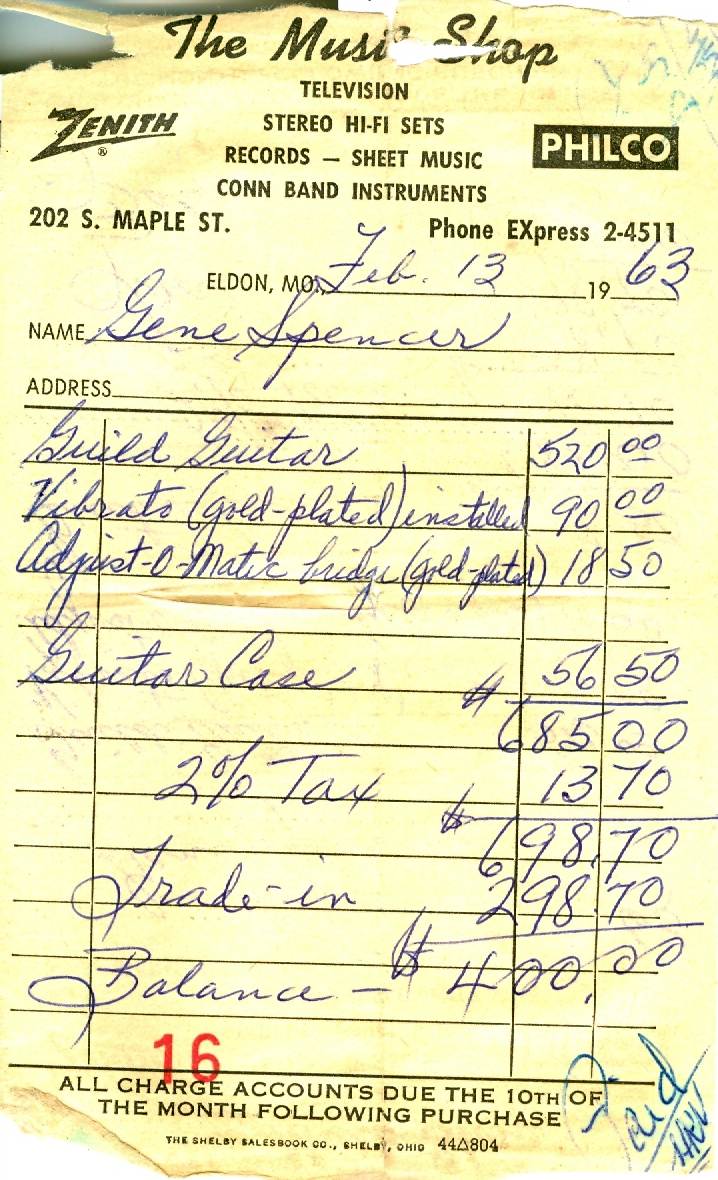 The Music Shop
TELEVISION
ZENITH ®
STEREO HI-FI SETS
PHILCO
RECORDS — SHEET MUSIC
CONN BAND INSTRUMENTS
202 S. MAPLE ST. Phone EXpress 2-4511
ELDON, MO., Feb. 13 1963
NAME Gene Spencer
ADDRESS
Guild Guitar 520 00
Vibrato (gold-plated) installed 90 00
Adjust-O-Matic bridge (gold-plated) 18 50
Guitar Case 56 50
$ 685 00
2% Tax 13 70
$ 698.70
Trade-in 298.70
Balance — $ 400.00
16
ALL CHARGE ACCOUNTS DUE THE 10TH OF
THE MONTH FOLLOWING PURCHASE
Paid
THE SHELBY SALESBOOK CO., SHELBY, OHIO 44△804